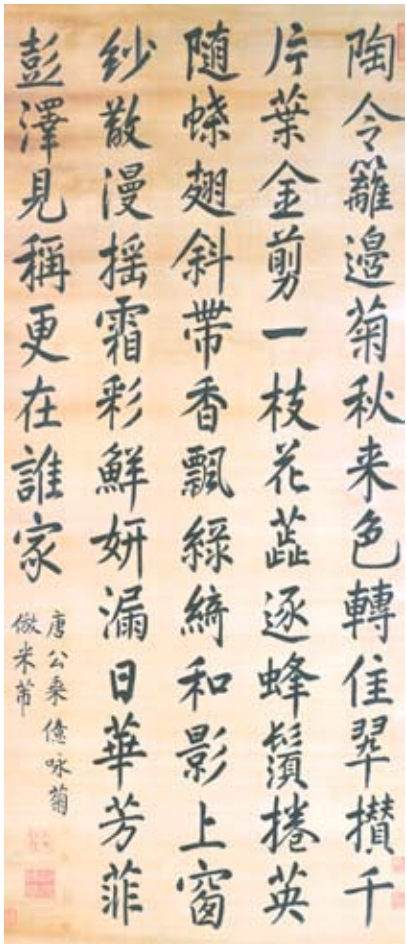 陶令籬邊菊秋来色轉佳翠攢千
片葉金剪一枝花蕋逐蜂鬚捲英
隨蝶翅斜帶香飄綠綺和影上窗
紗散漫摇霜彩鮮妍漏日華芳菲
彭澤見稱更在誰家
唐公乗億咏菊
倣米芾